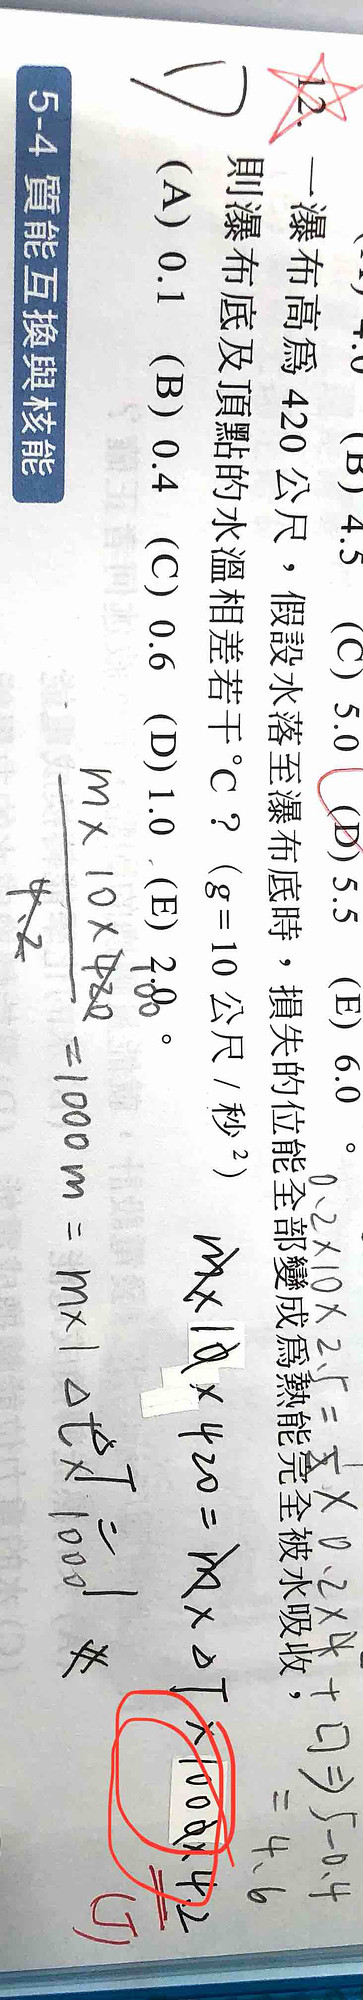 (B) 4.5 (C) 5.0 (D) 5.5 (E) 6.0 。
0.2×10×2.5=
=4.6
12. 一瀑布高為 420 公尺,假設水落至瀑布底時,損失的位能全部變成為熱能完全被水吸收,
則瀑布底及頂點的水溫相差若干℃?(g=10 公尺/秒²)
m×10×420=m×ΔT×1000×4.2
(J)
(A) 0.1 (B) 0.4 (C) 0.6 (D) 1.0 (E) 2.0 。
D
100
m×10×420
4.2
=1000m=m×1
5-4 質能互換與核能